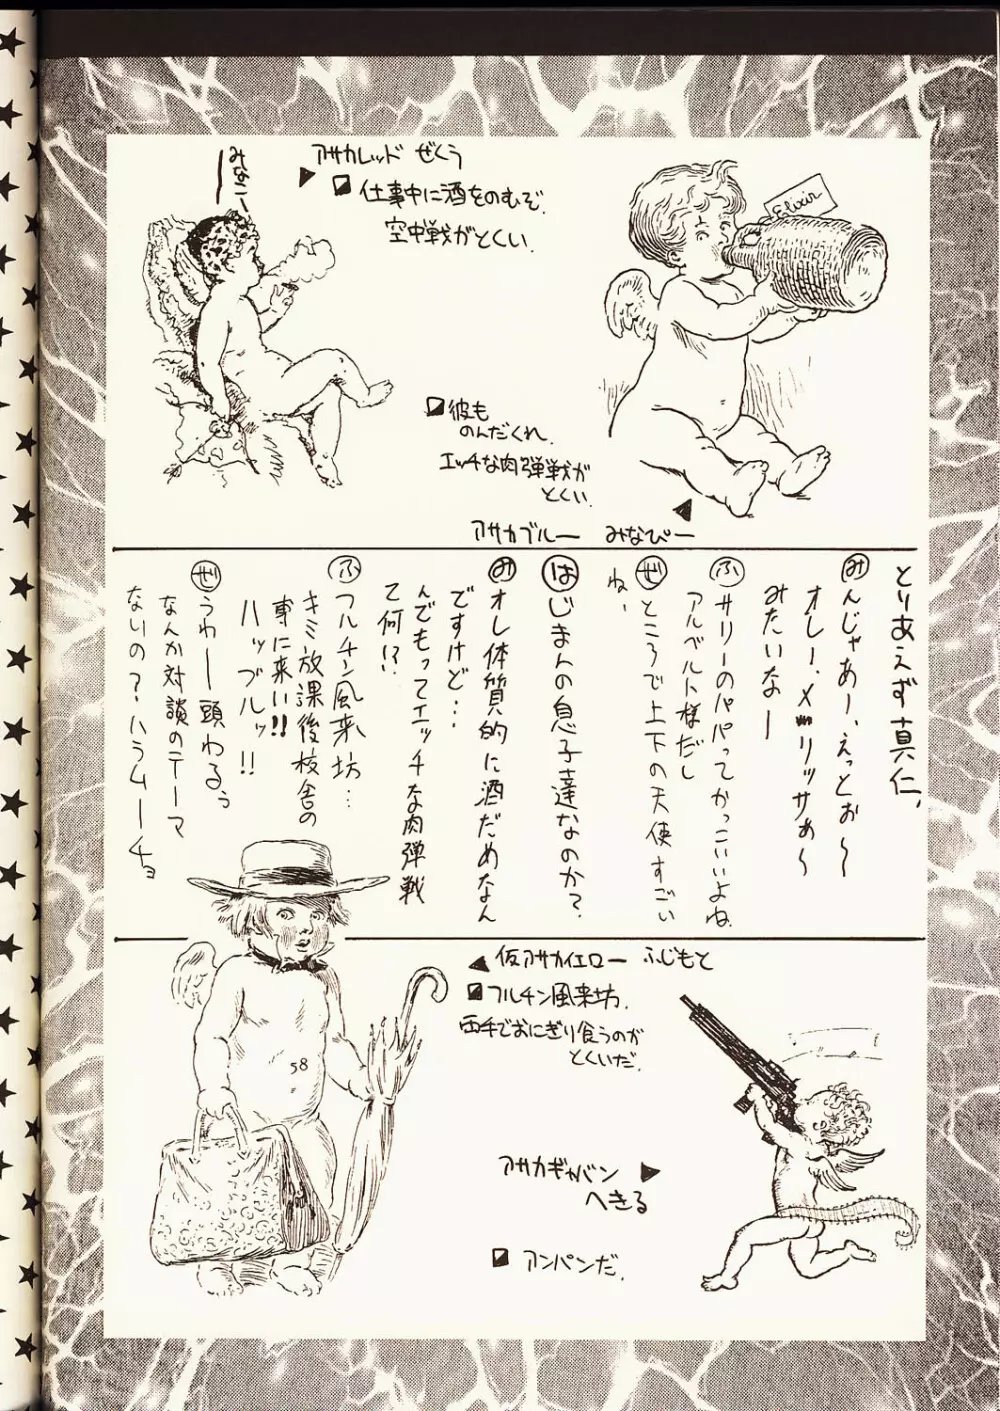 みなこ、
アサカレッド ぜくう
仕事中に酒をのむぞ.
空中戦がとくい.
Elixir
彼も
のんだくれ.
エッチな肉弾戦が
とくい.
アサカブルー みなぴー
とりあえず真仁、
みんじゃあー、えっとぉ〜
オレー、メーリッサぁ〜
みたいなー
ふサリーのパパってかっこいいよね.
アルベルト様だし
ぜところで上下の天使すごい
ね、
はじまんの息子達なのか？
みオレ体質的に酒だめなん
ですけど…
んでもってエッチな肉弾戦
て何!?
ふフルチン風来坊…
キミ放課後校舎の
裏に来い!!
ハッブルッ!!
ぜうわー頭わるぅ
なんか対談のテーマ
ないの？ハラムーチョ
仮アサカイエロー ふじもと
フルチン風来坊.
両手でおにぎり食うのが
とくいだ.
58
アサカギャバン
へきる
アンパンだ.